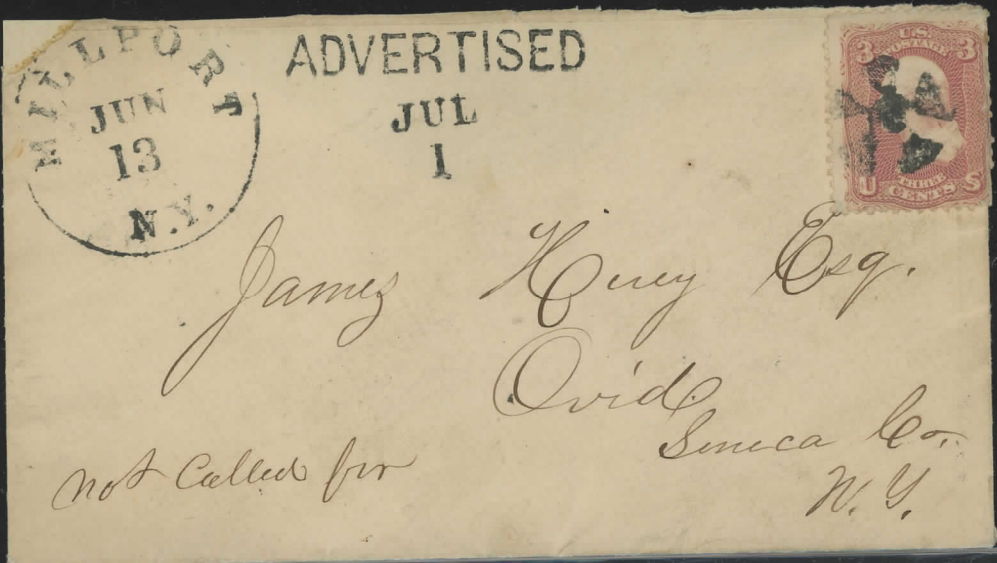 MILLPORT
JUN
13
N.Y.
ADVERTISED
JUL
1
U.S.
POSTAGE
3 3
THREE
CENTS
U S
James Huey Esq.
Ovid.
Seneca Co.
N.Y.
not Called for